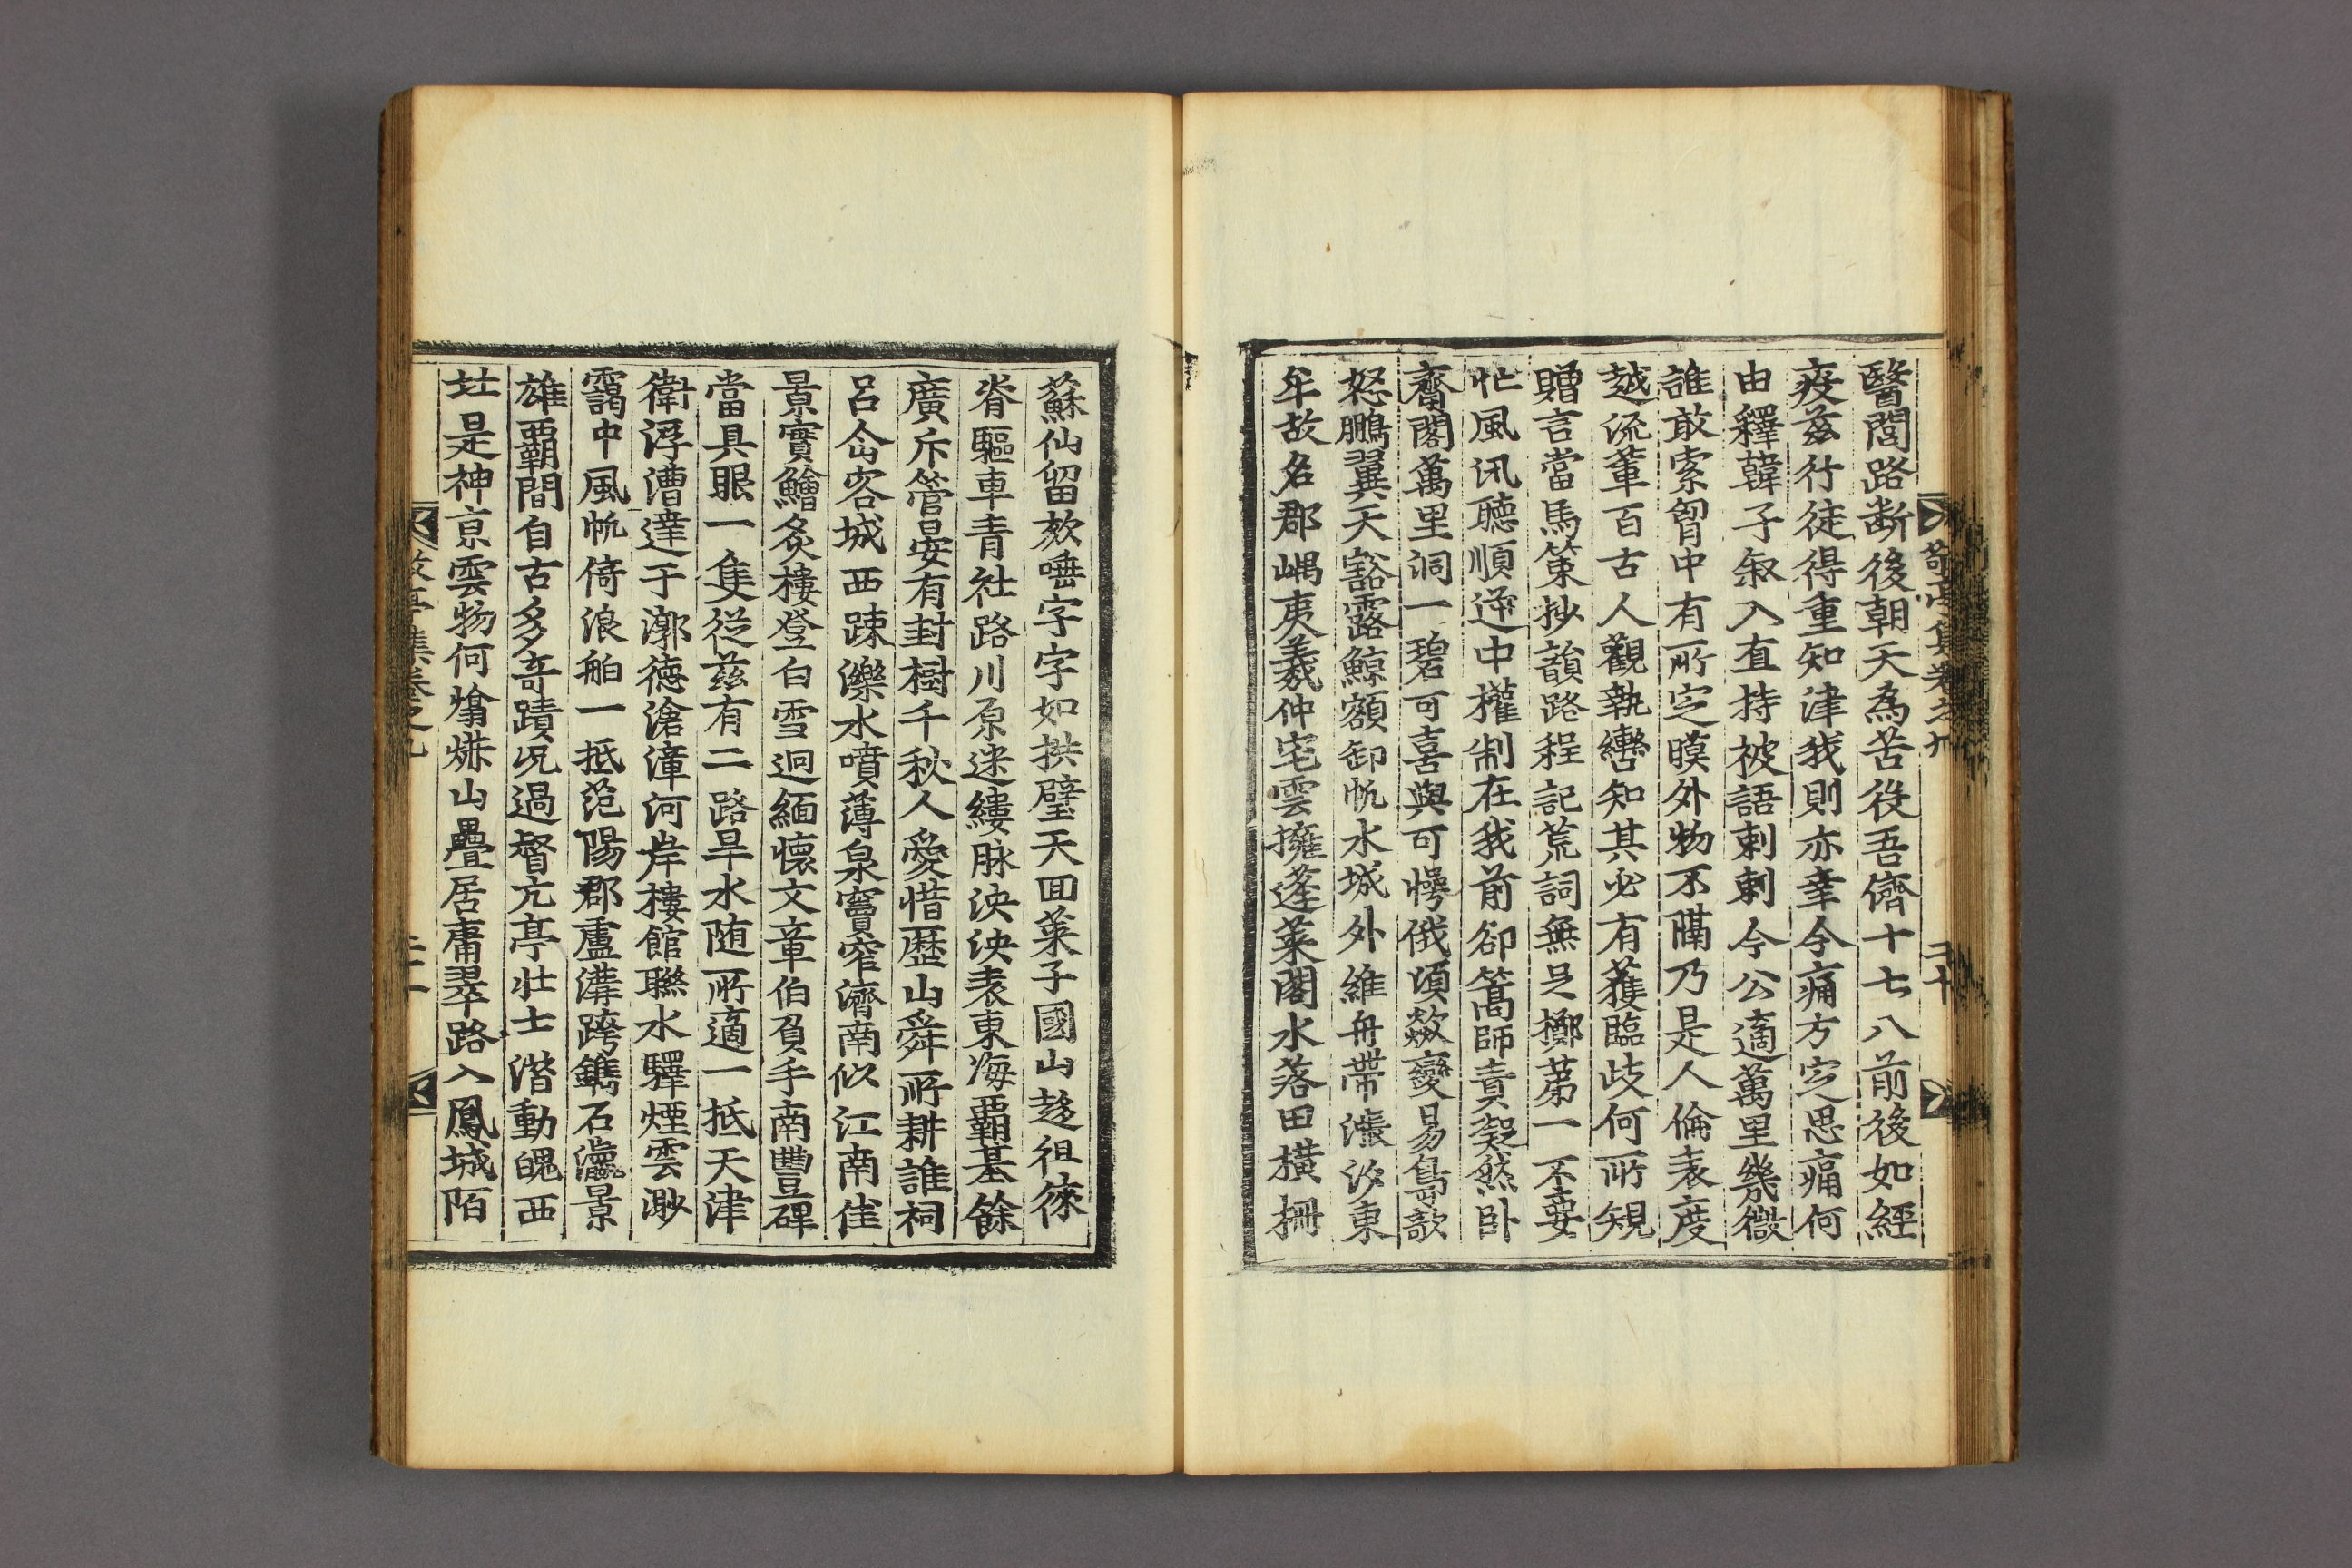 醫閭路断後朝天為苦役吾儕十七八前後如經
疫玆行徒得重知津我則亦幸今痛方定思痛何
由釋韓子叙入直持被語剌剌今公適萬里幾微
誰敢索胷中有所定膜外物不隔乃是人倫表度
越流軰百古人觀執轡知其必有獲臨歧何所規
贈言當馬策抄韻路程記荒詞無足擲苐一不要
忙風汛聽順逆中權制在我前卻篙師責粲然卧
齋閣萬里洞一碧可喜與可愕俄頃欻變易烏歌
怒鵬翼天豁露鯨額卸帆水城外維舟帶漲汐東
牟故名郡嵎夷羲仲宅雲擁蓬萊閣水落田橫柵
蘇仙留欬唾字字如拱璧天回萊子國山趁徂徠
脊驅車青社路川原迷縷脉泱泱表東海覇基餘
廣斥管晏有封樹千秋人愛惜歷山舜所耕誰祠
呂仚客城西踈濼水噴薄泉竇窄濟南似江南佳
景實鱠炙樓登白雪迥緬懷文章伯負手南豐碑
當具眼一隻從茲有二路旱水随所適一抵天津
衛浮漕達于漷德滄漳河岸樓館聯水驛煙雲渺
靄中風帆倚浪舶一抵范陽郡盧溝跨鐫石瀛景
雄覇間自古多竒蹟况過督亢亭壯士潜動魄西
㘰是神京雲物何熻爀山疊居庸翠路入鳳城陌
集卷之九 二十
集卷之九 二十一